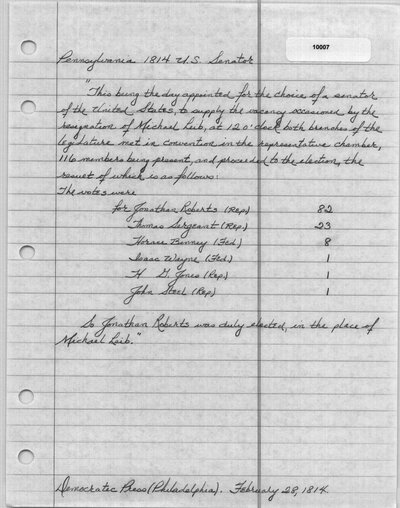 10007
Pennsylvania 1814 U.S. Senator
"This being the day appointed for the choice of a senator
of the United States, to supply the vacancy occasioned by the
resignation of Michael Leib, at 12 o'clock both branches of the
legislature met in convention in the representative chamber,
116 members being present, and proceeded to the election, the
result of which is as follows:
The votes were
for Jonathan Roberts (Rep) 82
Thomas Sergeant (Rep) 23
Horace Binney (Fed) 8
Isaac Wayne (Fed) 1
H G. Jones (Rep) 1
John Steel (Rep) 1
So Jonathan Roberts was duly elected, in the place of
Michael Leib."
Democratic Press (Philadelphia). February 28, 1814.